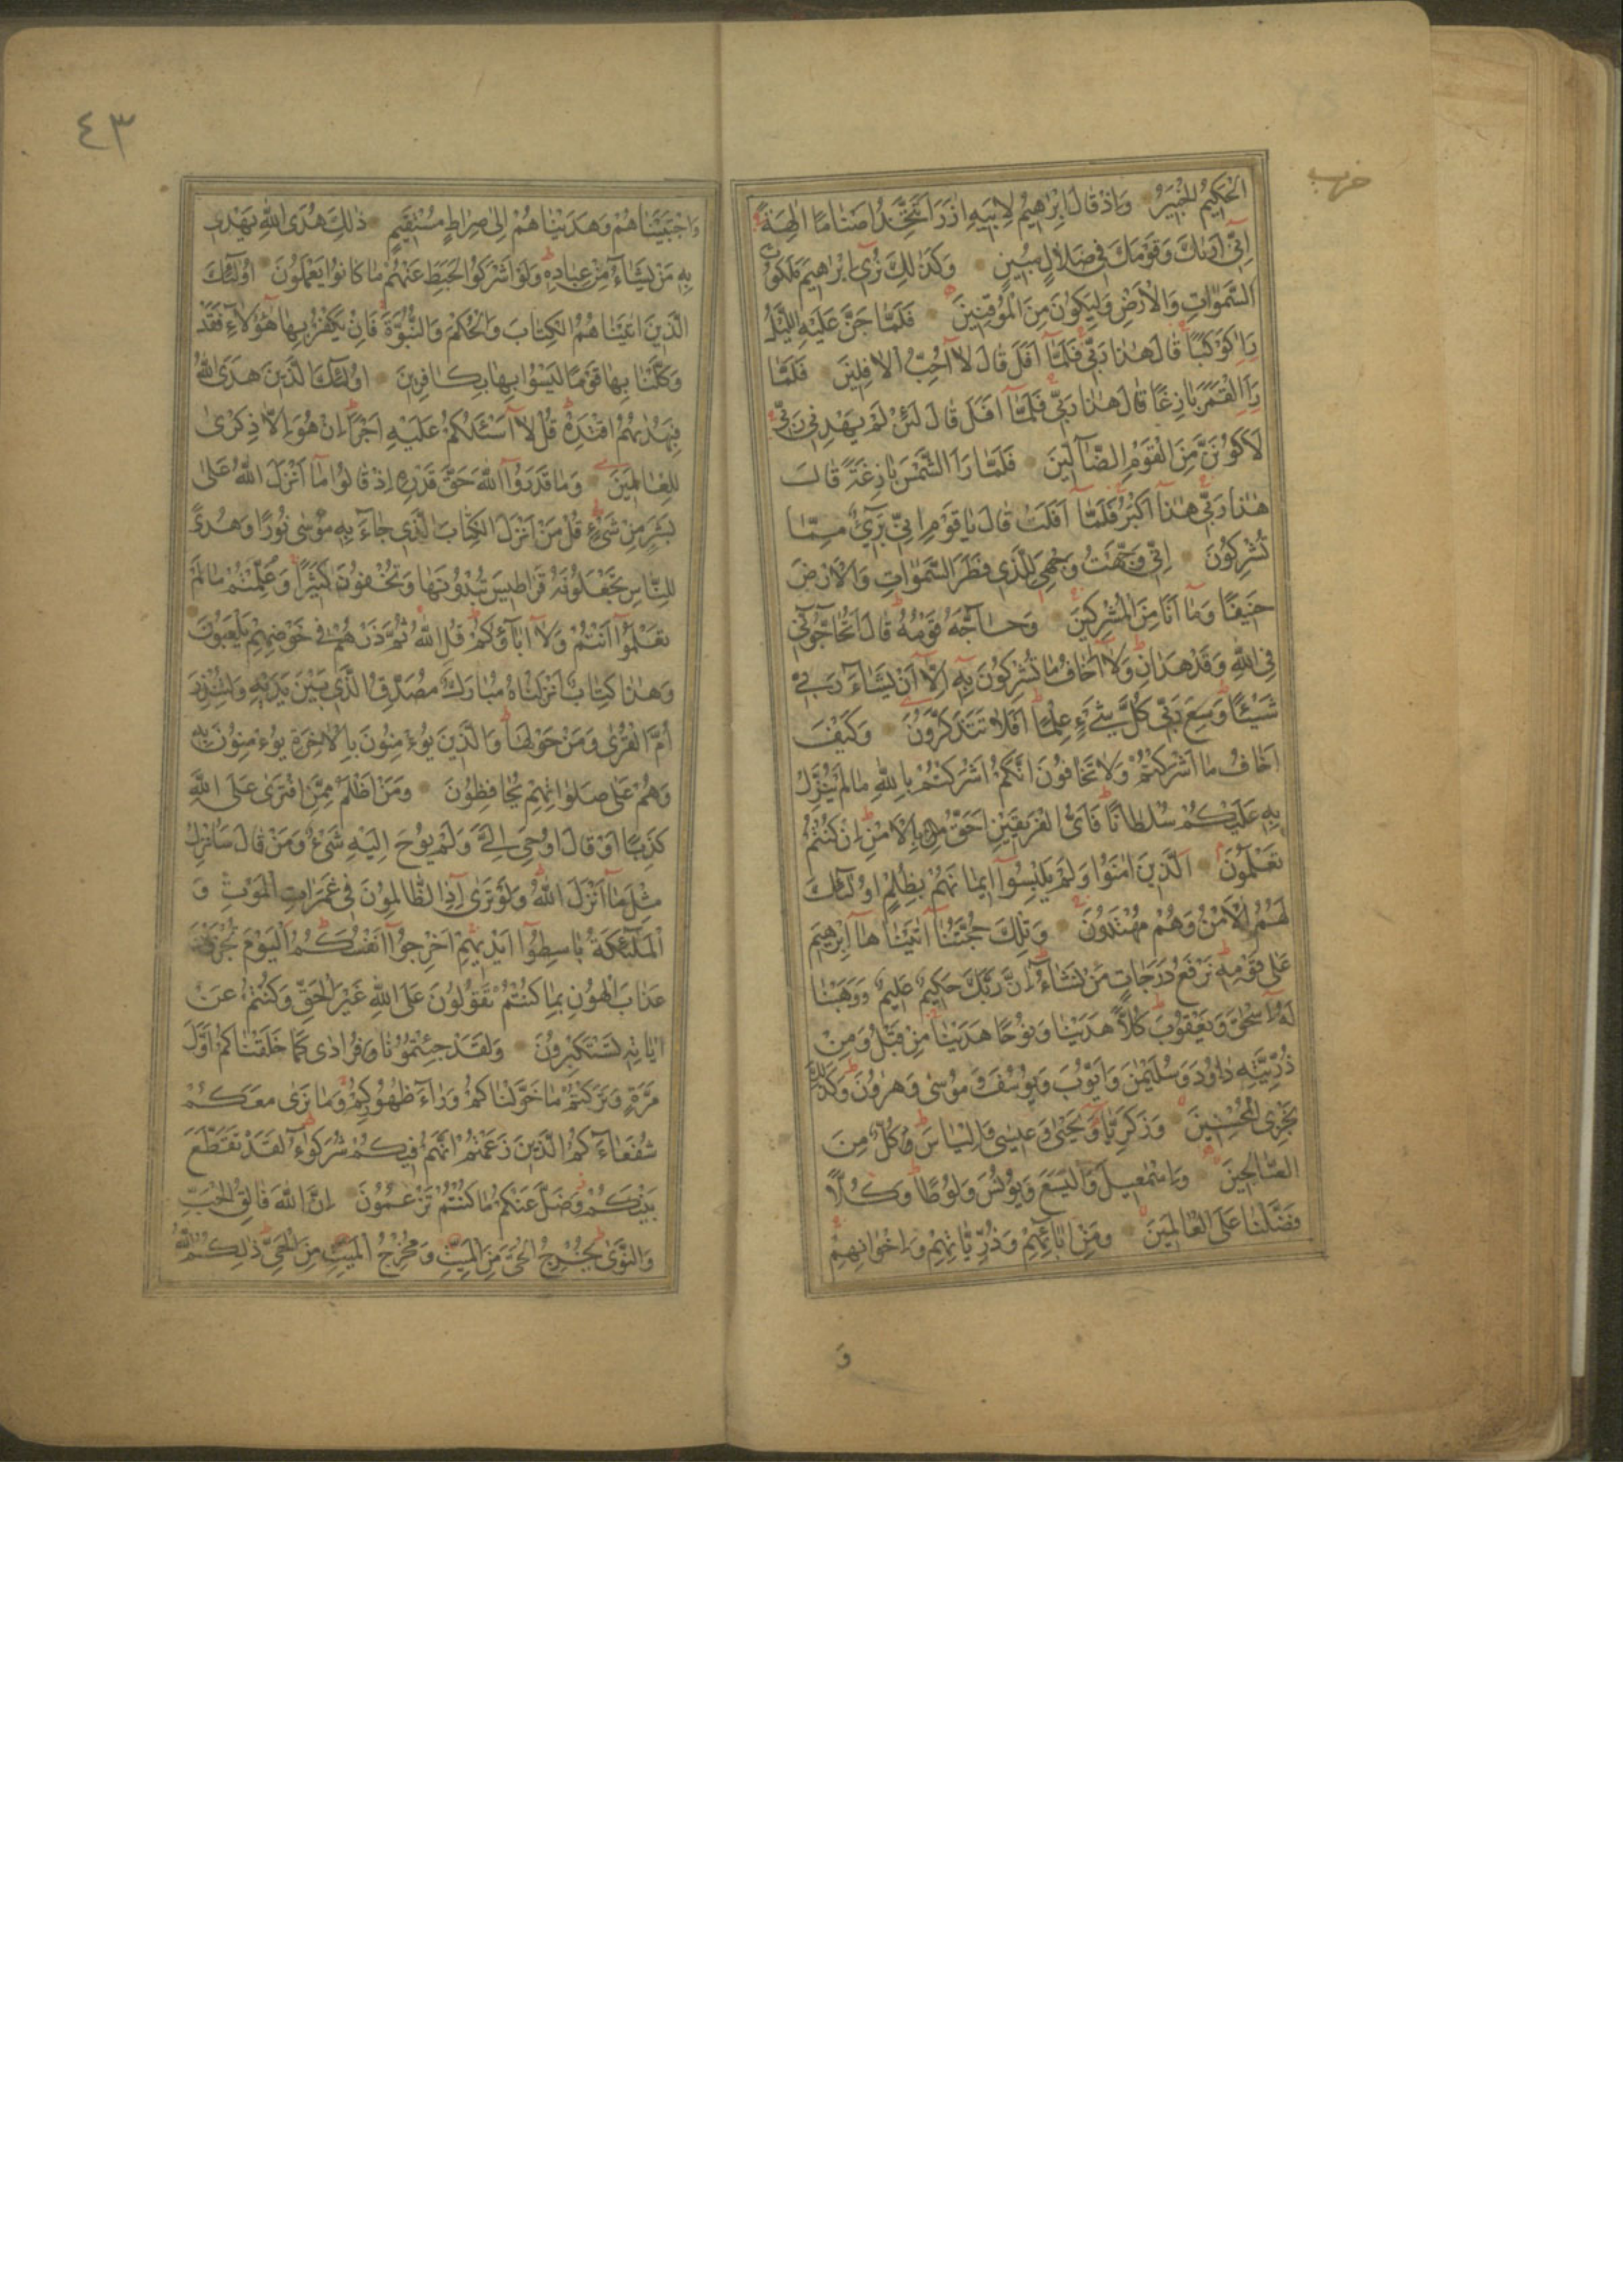 حزب
الْحَكِيمُ الْخَبِيرُ وَاِذْ قَالَ اِبْرٰهِيمُ لِاَبِيهِ اٰزَرَ اَتَتَّخِذُ اَصْنَامًا اٰلِهَةً
اِنِّي اَرٰيكَ وَقَوْمَكَ فِي ضَلَالٍ مُبِينٍ وَكَذٰلِكَ نُرِي اِبْرَاهِيمَ مَلَكُوتَ
السَّمٰوَاتِ وَالْاَرْضِ وَلِيَكُونَ مِنَ الْمُوقِنِينَ فَلَمَّا جَنَّ عَلَيْهِ اللَّيْلُ
رَاٰ كَوْكَبًا قَالَ هٰذَا رَبِّي فَلَمَّا اَفَلَ قَالَ لَا اُحِبُّ الْاٰفِلِينَ فَلَمَّا
رَاَ الْقَمَرَ بَازِغًا قَالَ هٰذَا رَبِّي فَلَمَّا اَفَلَ قَالَ لَئِنْ لَمْ يَهْدِنِي رَبِّي
لَاَكُونَنَّ مِنَ الْقَوْمِ الضَّآلِّينَ فَلَمَّا رَاَ الشَّمْسَ بَازِغَةً قَالَ
هٰذَا رَبِّي هٰذَا اَكْبَرُ فَلَمَّا اَفَلَتْ قَالَ يَا قَوْمِ اِنِّي بَرِيءٌ مِمَّا
تُشْرِكُونَ اِنِّي وَجَّهْتُ وَجْهِيَ لِلَّذِي فَطَرَ السَّمٰوَاتِ وَالْاَرْضَ
حَنِيفًا وَمَا اَنَا مِنَ الْمُشْرِكِينَ وَحَاجَّهُ قَوْمُهُ قَالَ اَتُحَاجُّونِّي
فِي اللهِ وَقَدْ هَدَانِ وَلَا اَخَافُ مَا تُشْرِكُونَ بِهِ اِلَّا اَنْ يَشَاءَ رَبِّي
شَيْئًا وَسِعَ رَبِّي كُلَّ شَيْءٍ عِلْمًا اَفَلَا تَتَذَكَّرُونَ وَكَيْفَ
اَخَافُ مَا اَشْرَكْتُمْ وَلَا تَخَافُونَ اَنَّكُمْ اَشْرَكْتُمْ بِاللهِ مَا لَمْ يُنَزِّلْ
بِهِ عَلَيْكُمْ سُلْطَانًا فَاَيُّ الْفَرِيقَيْنِ اَحَقُّ بِالْاَمْنِ اِنْ كُنْتُمْ
تَعْلَمُونَ اَلَّذِينَ اٰمَنُوا وَلَمْ يَلْبِسُوا اِيمَانَهُمْ بِظُلْمٍ اُولٰئِكَ
لَهُمُ الْاَمْنُ وَهُمْ مُهْتَدُونَ وَتِلْكَ حُجَّتُنَا اٰتَيْنَاهَا اِبْرٰهِيمَ
عَلٰى قَوْمِهِ نَرْفَعُ دَرَجَاتٍ مَنْ نَشَاءُ اِنَّ رَبَّكَ حَكِيمٌ عَلِيمٌ وَوَهَبْنَا
لَهُ اِسْحٰقَ وَيَعْقُوبَ كُلًّا هَدَيْنَا وَنُوحًا هَدَيْنَا مِنْ قَبْلُ وَمِنْ
ذُرِّيَّتِهِ دَاوُدَ وَسُلَيْمٰنَ وَاَيُّوبَ وَيُوسُفَ وَمُوسٰى وَهٰرُونَ وَكَذٰلِكَ
نَجْزِي الْمُحْسِنِينَ وَزَكَرِيَّا وَيَحْيٰى وَعِيسٰى وَاِلْيَاسَ كُلٌّ مِنَ
الصَّالِحِينَ وَاِسْمٰعِيلَ وَالْيَسَعَ وَيُونُسَ وَلُوطًا وَكُلًّا
فَضَّلْنَا عَلَى الْعَالَمِينَ وَمِنْ اٰبَائِهِمْ وَذُرِّيَّاتِهِمْ وَاِخْوَانِهِمْ
وَ
٤٣
وَاجْتَبَيْنَاهُمْ وَهَدَيْنَاهُمْ اِلٰى صِرَاطٍ مُسْتَقِيمٍ ذٰلِكَ هُدَى اللهِ يَهْدِي
بِهِ مَنْ يَشَاءُ مِنْ عِبَادِهِ وَلَوْ اَشْرَكُوا لَحَبِطَ عَنْهُمْ مَا كَانُوا يَعْمَلُونَ اُولٰئِكَ
الَّذِينَ اٰتَيْنَاهُمُ الْكِتَابَ وَالْحُكْمَ وَالنُّبُوَّةَ فَاِنْ يَكْفُرْ بِهَا هٰؤُلَاءِ فَقَدْ
وَكَّلْنَا بِهَا قَوْمًا لَيْسُوا بِهَا بِكَافِرِينَ اُولٰئِكَ الَّذِينَ هَدَى اللهُ
فَبِهُدٰيهُمُ اقْتَدِهْ قُلْ لَا اَسْئَلُكُمْ عَلَيْهِ اَجْرًا اِنْ هُوَ اِلَّا ذِكْرٰى
لِلْعَالَمِينَ وَمَا قَدَرُوا اللهَ حَقَّ قَدْرِهِ اِذْ قَالُوا مَا اَنْزَلَ اللهُ عَلٰى
بَشَرٍ مِنْ شَيْءٍ قُلْ مَنْ اَنْزَلَ الْكِتَابَ الَّذِي جَاءَ بِهِ مُوسٰى نُورًا وَهُدًى
لِلنَّاسِ تَجْعَلُونَهُ قَرَاطِيسَ تُبْدُونَهَا وَتُخْفُونَ كَثِيرًا وَعُلِّمْتُمْ مَا لَمْ
تَعْلَمُوا اَنْتُمْ وَلَا اٰبَاؤُكُمْ قُلِ اللهُ ثُمَّ ذَرْهُمْ فِي خَوْضِهِمْ يَلْعَبُونَ
وَهٰذَا كِتَابٌ اَنْزَلْنَاهُ مُبَارَكٌ مُصَدِّقُ الَّذِي بَيْنَ يَدَيْهِ وَلِتُنْذِرَ
اُمَّ الْقُرٰى وَمَنْ حَوْلَهَا وَالَّذِينَ يُؤْمِنُونَ بِالْاٰخِرَةِ يُؤْمِنُونَ بِهِ
وَهُمْ عَلٰى صَلَوَاتِهِمْ يُحَافِظُونَ وَمَنْ اَظْلَمُ مِمَّنِ افْتَرٰى عَلَى اللهِ
كَذِبًا اَوْ قَالَ اُوحِيَ اِلَيَّ وَلَمْ يُوحَ اِلَيْهِ شَيْءٌ وَمَنْ قَالَ سَاُنْزِلُ
مِثْلَ مَا اَنْزَلَ اللهُ وَلَوْ تَرٰى اِذِ الظَّالِمُونَ فِي غَمَرَاتِ الْمَوْتِ وَ
الْمَلٰئِكَةُ بَاسِطُوا اَيْدِيهِمْ اَخْرِجُوا اَنْفُسَكُمُ اَلْيَوْمَ تُجْزَوْنَ
عَذَابَ الْهُونِ بِمَا كُنْتُمْ تَقُولُونَ عَلَى اللهِ غَيْرَ الْحَقِّ وَكُنْتُمْ عَنْ
اٰيَاتِهِ تَسْتَكْبِرُونَ وَلَقَدْ جِئْتُمُونَا فُرَادٰى كَمَا خَلَقْنَاكُمْ اَوَّلَ
مَرَّةٍ وَتَرَكْتُمْ مَا خَوَّلْنَاكُمْ وَرَاءَ ظُهُورِكُمْ وَمَا نَرٰى مَعَكُمْ
شُفَعَاءَكُمُ الَّذِينَ زَعَمْتُمْ اَنَّهُمْ فِيكُمْ شُرَكٰؤُا لَقَدْ تَقَطَّعَ
بَيْنَكُمْ وَضَلَّ عَنْكُمْ مَا كُنْتُمْ تَزْعُمُونَ اِنَّ اللهَ فَالِقُ الْحَبِّ
وَالنَّوٰى يُخْرِجُ الْحَيَّ مِنَ الْمَيِّتِ وَمُخْرِجُ الْمَيِّتِ مِنَ الْحَيِّ ذٰلِكُمُ اللهُ